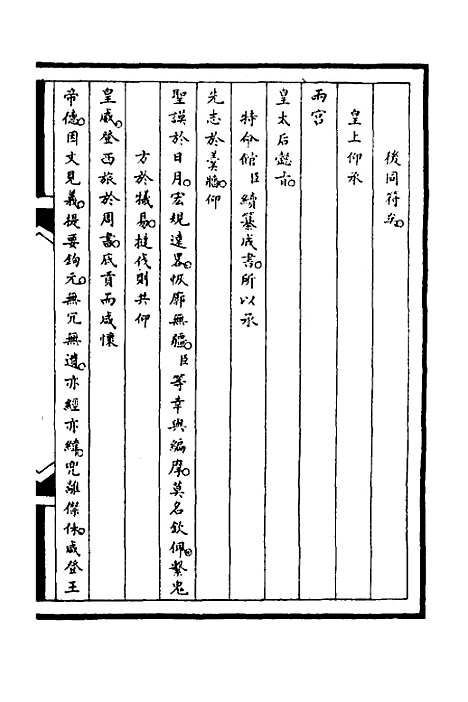 後同符矣。
皇上仰承
兩宮
皇太后懿旨。
特命館臣續纂成書。所以承
先志於羹牆。仰
聖謨於日月。宏規達畧。恢廓無疆。臣等幸與編摩。莫名欽佩。繫鬼
方於犧易。撻伐則共仰
皇威。登西旅於周書。底貢而咸懷
帝德。因文見義。提要鈎元。無冗無遺。亦經亦緯。兜離傑休。咸登王